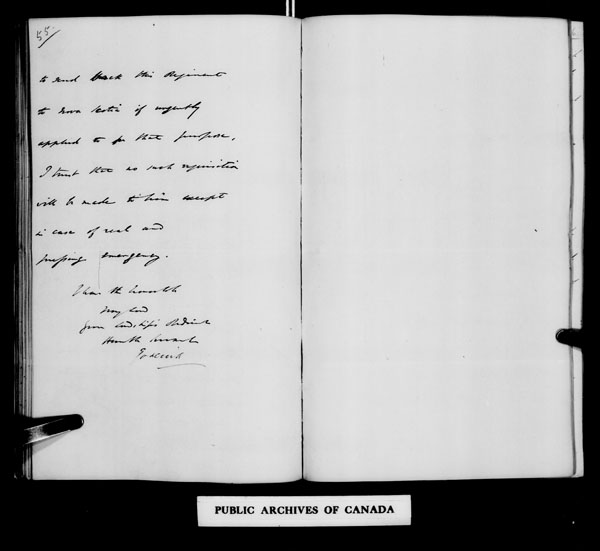 55/
to send back this Regiment
to Nova Scotia if urgently
applied to for that purpose,
I trust that no such requisition
will be made to him except
in case of real and
pressing emergency.
I have the honor
My Lord
Your Lordship's Obedient
Humble Servant
PUBLIC ARCHIVES OF CANADA